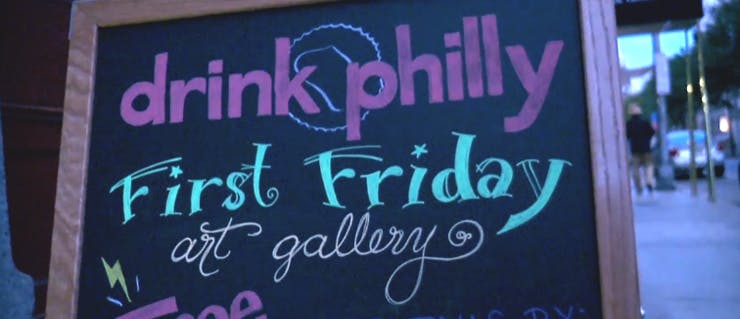 drink philly
First Friday
art gallery
Free